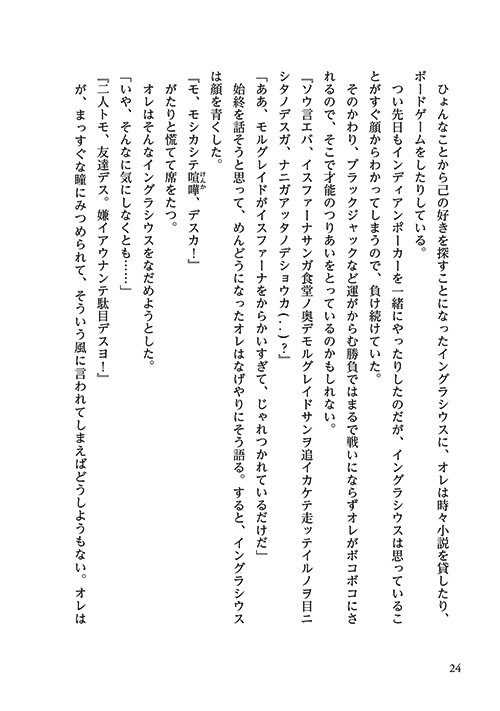 ひょんなことから己の好きを探すことになったイングラシウスに、オレは時々小説を貸したり、
ボードゲームをしたりしている。
　つい先日もインディアンポーカーを一緒にやったりしたのだが、イングラシウスは思っているこ
とがすぐ顔からわかってしまうので、負け続けていた。
　そのかわり、ブラックジャックなど運がからむ勝負ではまるで戦いにならずオレがボコボコにさ
れるので、そこで才能のつりあいをとっているのかもしれない。
『ソウ言エバ、イスファーナサンガ食堂ノ奥デモルグレイドサンヲ追イカケテ走ッテイルノヲ目ニ
シタノデスガ、ナニガアッタノデショウカ（．．）？』
「ああ、モルグレイドがイスファーナをからかいすぎて、じゃれつかれているだけだ」
　始終を話そうと思って、めんどうになったオレはなげやりにそう語る。すると、イングラシウス
は顔を青くした。
『モ、モシカシテ喧嘩、デスカ！』
けんか
　がたりと慌てて席をたつ。
　オレはそんなイングラシウスをなだめようとした。
「いや、そんなに気にしなくとも……」
『二人トモ、友達デス。嫌イアウナンテ駄目デスヨ！』
　が、まっすぐな瞳にみつめられて、そういう風に言われてしまえばどうしようもない。オレは
24